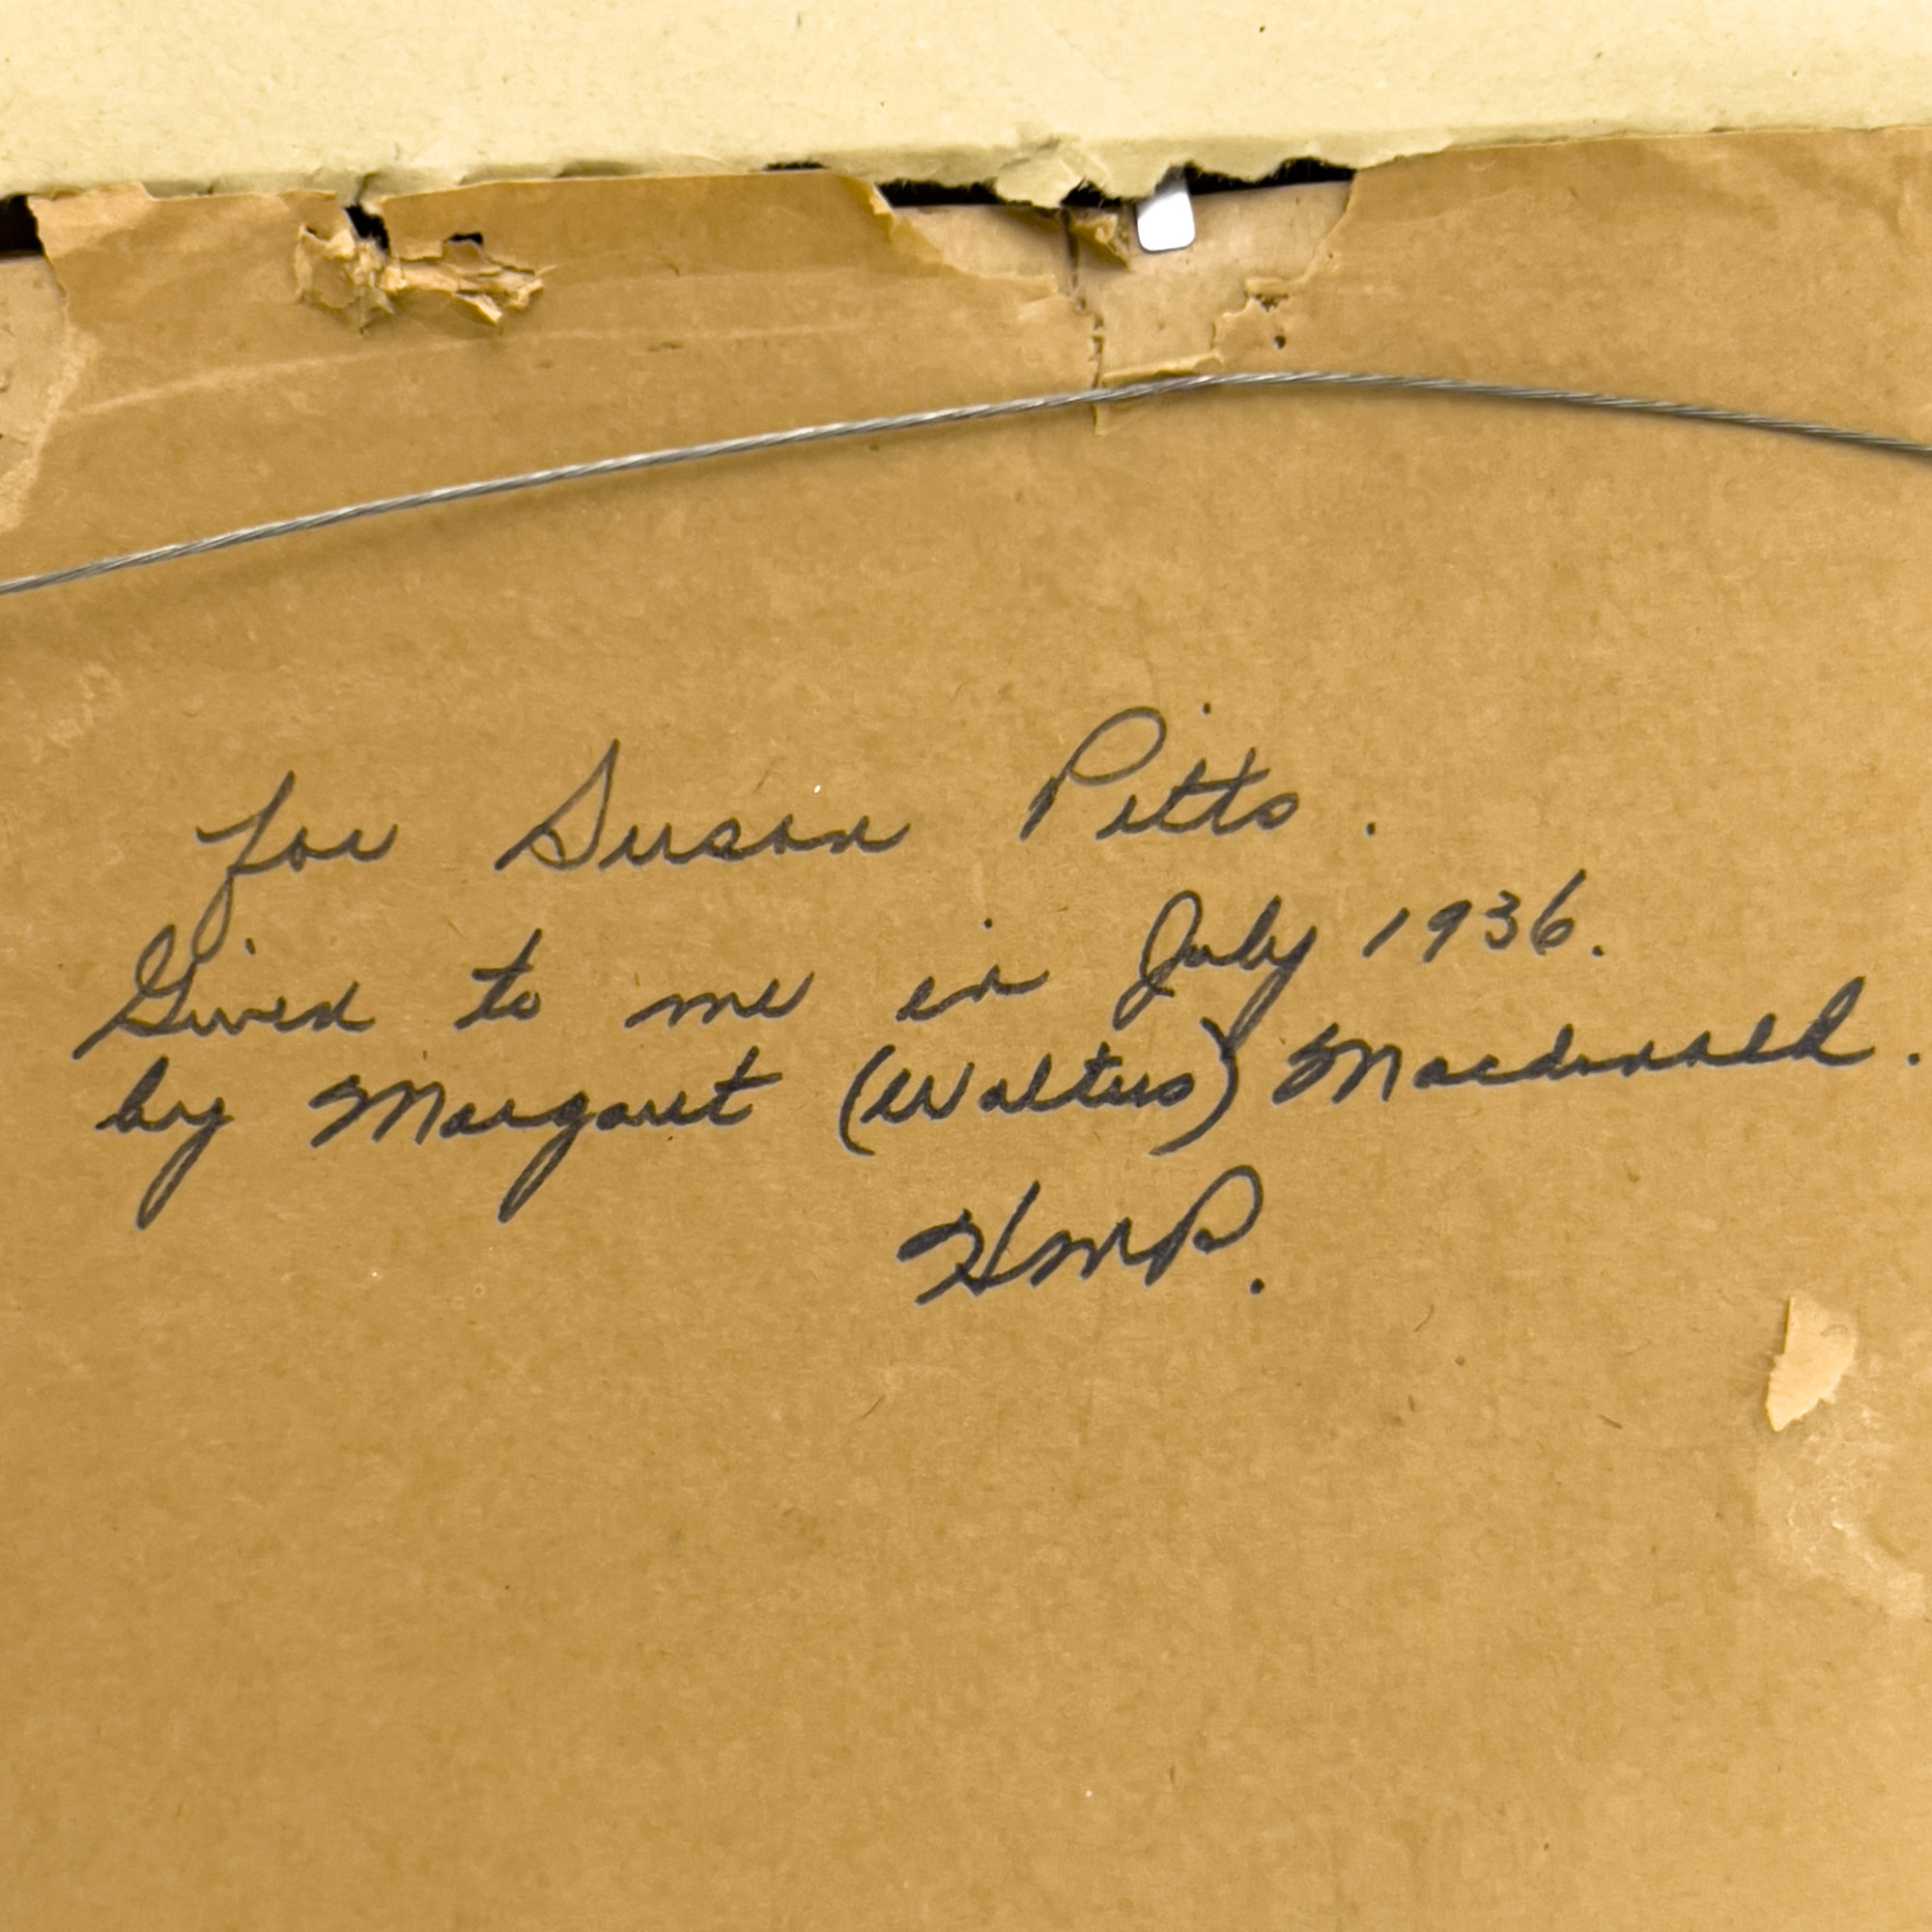 for Susan Pitts.
Given to me in July 1936.
by Margaret (Walters) Macdonald.
HMP.